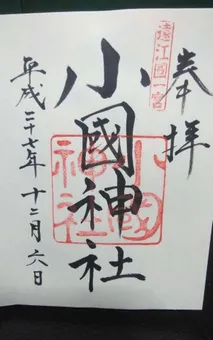 奉拝
遠江國一宮
小國神社
小國神社
平成二十七年十二月六日